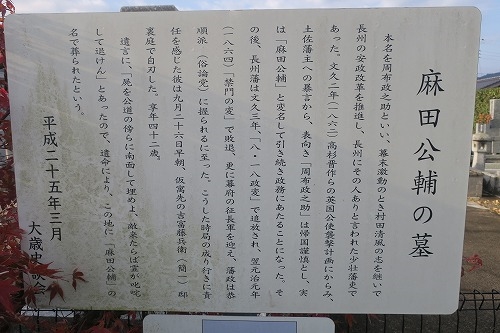 麻田公輔の墓
本名を周布政之助といい、幕末激動のとき村田清風の志を継いで
長州の安政改革を推進し、長州にその人ありと言われた少壮藩吏で
あった。文久二年（一八六二）高杉晋作らの英国公使襲撃計画にからみ、
土佐藩主への暴言から、表向き「周布政之助」は帰国謹慎とし、実
は「麻田公輔」と変名して引き続き政務にあたることになった。そ
の後、長州藩は文久三年、「八・一八政変」で追放され、翌元治元年
（一八六四）「禁門の変」で敗退、更に幕府の征長軍を迎え、藩政は恭
順派（俗論党）に握られるに至った。こうした時局の成り行きに責
任を感じた彼は九月二十六日早朝、仮寓先の吉富藤兵衛（簡一）邸
裏庭で自刃した。享年四十二歳。
遺言に、「屍を公道の傍らに南面して埋めよ、敵来たらば霊が叱咤
して退けん」とあったので、遺命により、この地に「麻田公輔」の
名で葬られたという。
平成二十五年三月
大歳史談会